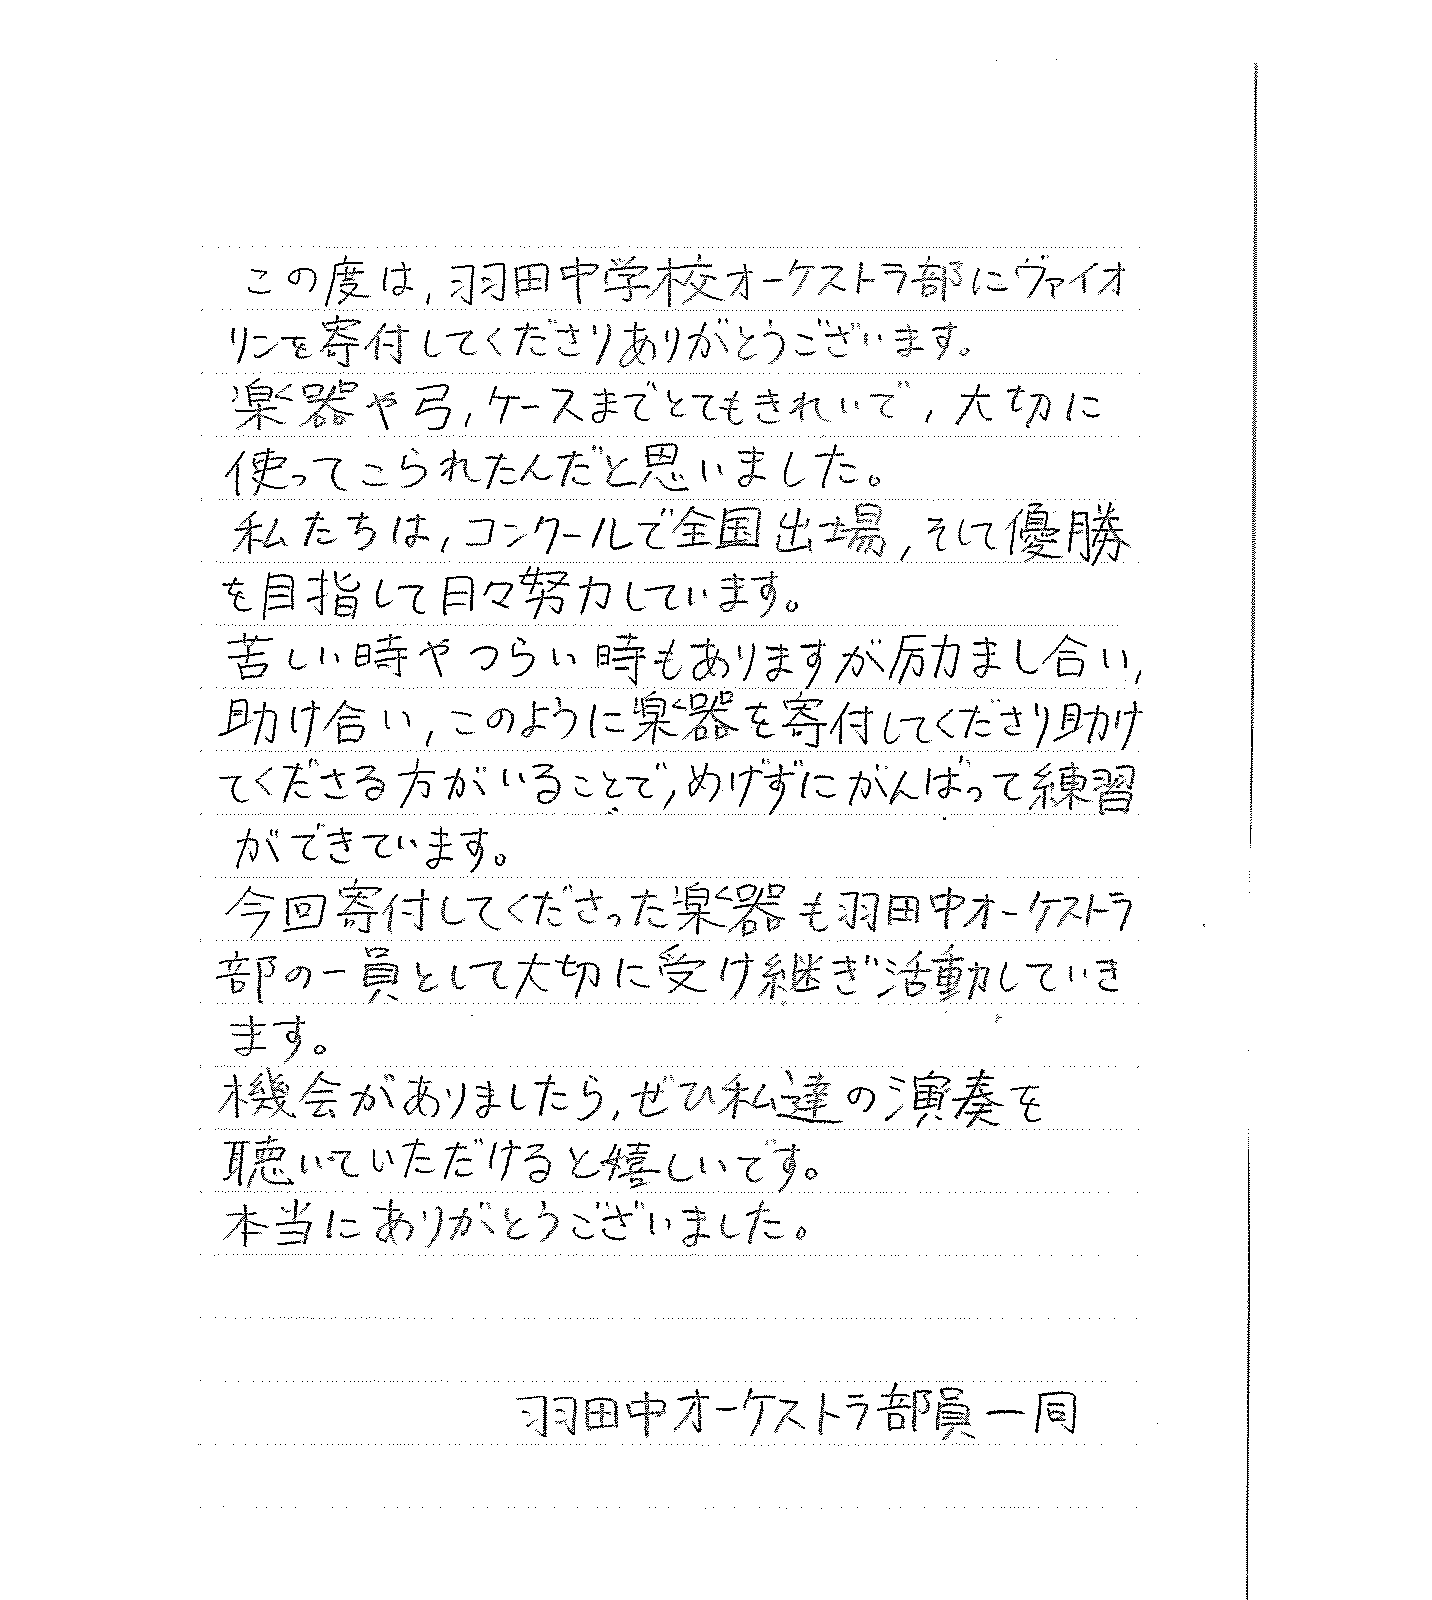 この度は,羽田中学校オーケストラ部にヴァイオ
リンを寄付してくださりありがとうございます。
楽器や弓,ケースまでとてもきれいで,大切に
使ってこられたんだと思いました。
私たちは,コンクールで全国出場,そして優勝
を目指して日々努力しています。
苦しい時やつらい時もありますが励まし合い,
助け合い,このように楽器を寄付してくださり助け
てくださる方がいることで,めげずにがんばって練習
ができています。
今回寄付してくださった楽器も羽田中オーケストラ
部の一員として大切に受け継ぎ活動していき
ます。
機会がありましたら,ぜひ私達の演奏を
聴いていただけると嬉しいです。
本当にありがとうございました。
羽田中オーケストラ部員一同